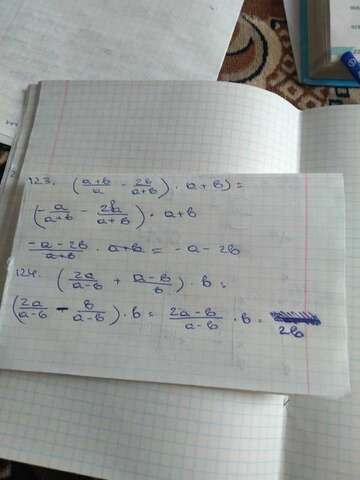 123. (a+b/a - 2b/a+b) · a+b) =
(-a/a+b - 2b/a+b) · a+b
-a-2b/a+b · a+b = -a-2b
124. (2a/a-b + a-b/b) · b =
(2a/a-b - b/a-b) · b = 2a-b/a-b · b =
2b